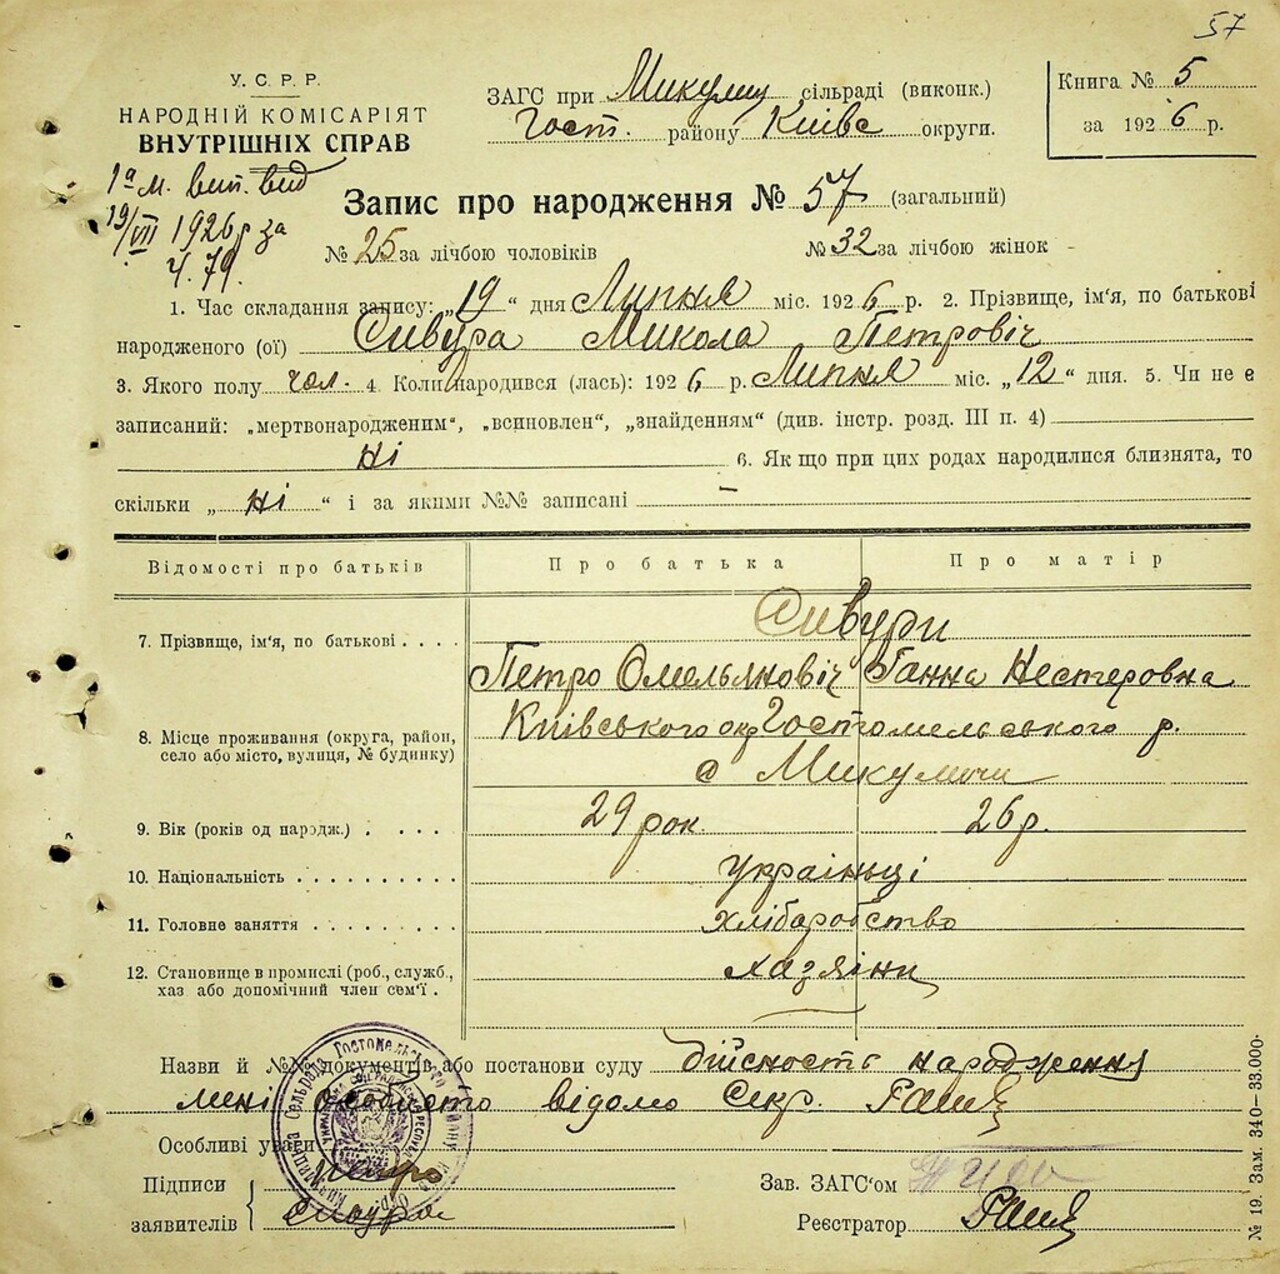 57
У. С. Р. Р.
НАРОДНІЙ КОМІСАРІЯТ
ВНУТРІШНІХ СПРАВ
ЗАГС при Микулиц сільраді (виконк.)
Гост. району Київс округи.
Книга № 5
за 1926 р.
1а м. вип. вид
19/VII 1926 р за
ч. 79.
Запис про народження № 57 (загальний)
№ 25 за лічбою чоловіків № 32 за лічбою жінок -
1. Час складання запису: „19“ дня Липня міс. 1926 р. 2. Прізвище, ім'я, по батькові
народженого (ої) Сивура Микола Петровіч
3. Якого полу чол. 4. Коли народився (лась): 1926 р. Липня міс. „12“ дня. 5. Чи не є
записаний: „мертвонародженим“, „всиновлен“, „знайденням“ (див. інстр. розд. III п. 4)
ні 6. Як що при цих родах народилися близнята, то
скільки „ні“ і за якими №№ записані –
Відомості про батьків Про батька Про матір
Сивури
7. Прізвище, ім'я, по батькові . . . .
Петро Омельяновіч Ганна Нестеровна
8. Місце проживання (округа, район,
село або місто, вулиця, № будинку)
Київського окр Гостомельського р.
с Микуличи
9. Вік (років од народж.) . . . . 29 рок. 26 р.
10. Національність . . . . . . . . . . Українці
11. Головне заняття . . . . . . . . . хліборобство
12. Становище в промислі (роб., служб.,
хаз або допомічний член сем'ї .
хазяїни
Назви й №№ документів або постанови суду дійсность народження
мені особисто відомо Секр.
Особливі уваги
Підписи
заявителів
Петро
Зав. ЗАГС'ом
Реєстратор
№ 19. Зам. 340—33.000.